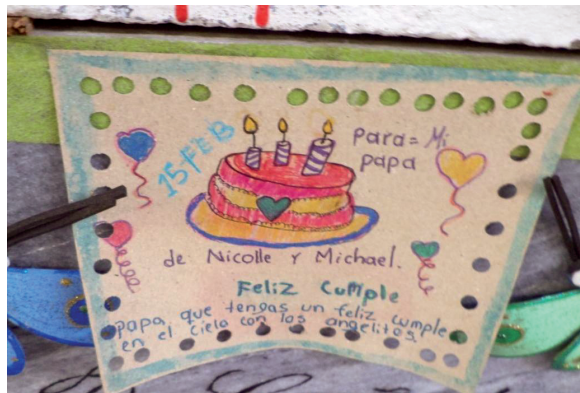 15 FEB
para = Mi
papa
de Nicolle y Michael.
Feliz Cumple
papa que tengas un feliz cumple
en el cielo con los angelitos.